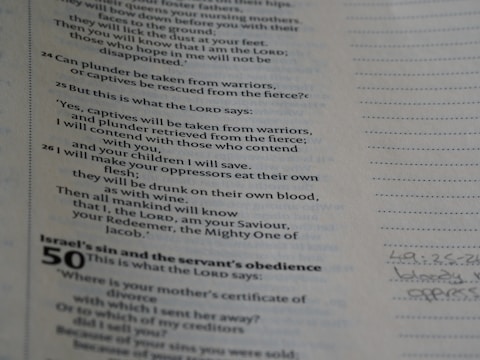 your foster fathers,
queens your nursing mothers.
They will bow down before you with their
faces to the ground;
they will lick the dust at your feet.
Then you will know that I am the LORD;
those who hope in me will not be
disappointed.'
24 Can plunder be taken from warriors,
or captives be rescued from the fierce?c
25 But this is what the LORD says:
'Yes, captives will be taken from warriors,
and plunder retrieved from the fierce;
I will contend with those who contend
with you,
and your children I will save.
26 I will make your oppressors eat their own
flesh;
they will be drunk on their own blood,
as with wine.
Then all mankind will know
that I, the LORD, am your Saviour,
your Redeemer, the Mighty One of
Jacob.'
Israel's sin and the servant's obedience
50 This is what the LORD says:
'Where is your mother's certificate of
divorce
with which I sent her away?
Or to which of my creditors
did I sell you?
Because of your sins you were sold;
because of your
49:25-26
bloody
oppress